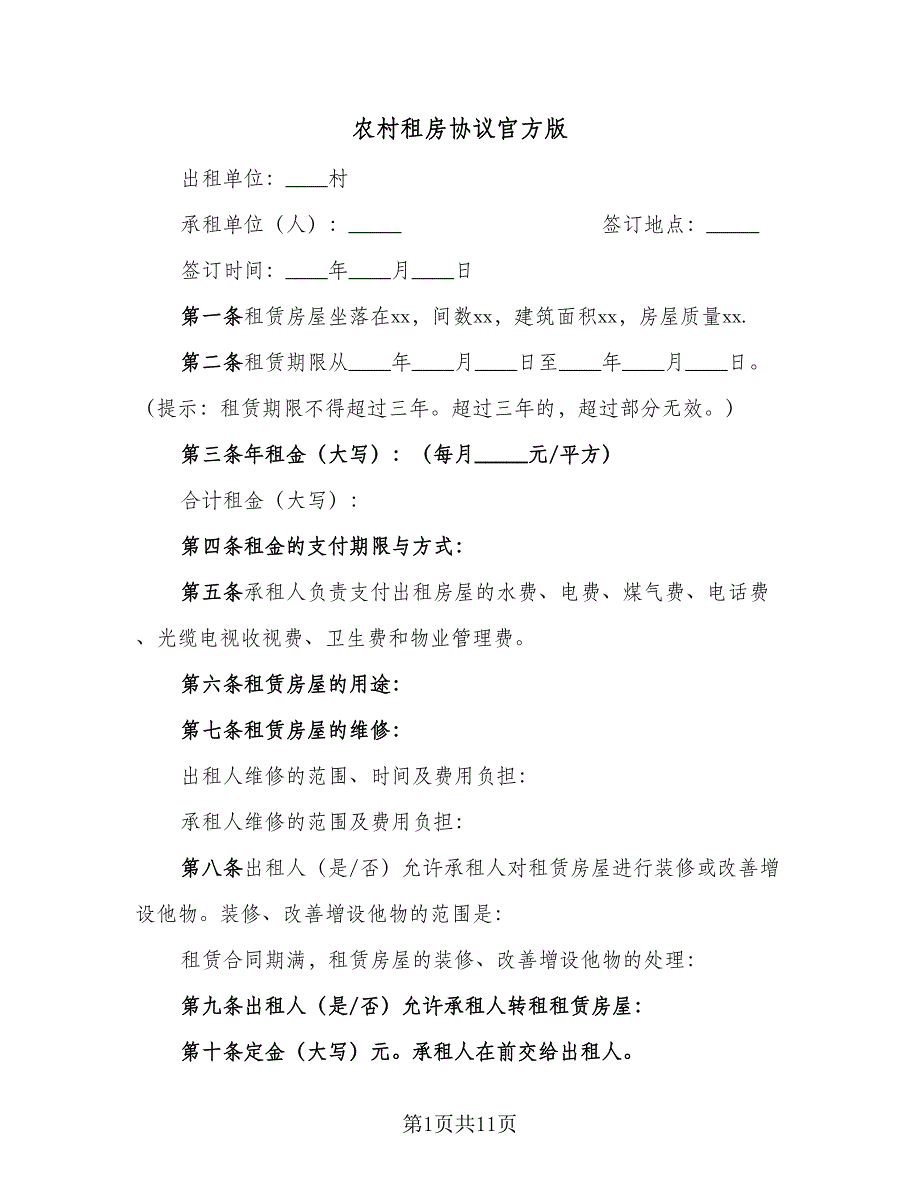 农村租房协议官方版
出租单位：____村
承租单位（人）：_____ 签订地点：_____
签订时间：____年____月____日
第一条租赁房屋坐落在xx，间数xx，建筑面积xx，房屋质量xx.
第二条租赁期限从____年____月____日至____年____月____日。
（提示：租赁期限不得超过三年。超过三年的，超过部分无效。）
第三条年租金（大写）：（每月_____元/平方）
合计租金（大写）：
第四条租金的支付期限与方式：
第五条承租人负责支付出租房屋的水费、电费、煤气费、电话费
、光缆电视收视费、卫生费和物业管理费。
第六条租赁房屋的用途：
第七条租赁房屋的维修：
出租人维修的范围、时间及费用负担：
承租人维修的范围及费用负担：
第八条出租人（是/否）允许承租人对租赁房屋进行装修或改善增
设他物。装修、改善增设他物的范围是：
租赁合同期满，租赁房屋的装修、改善增设他物的处理：
第九条出租人（是/否）允许承租人转租租赁房屋：
第十条定金（大写）元。承租人在前交给出租人。
第1页共11页